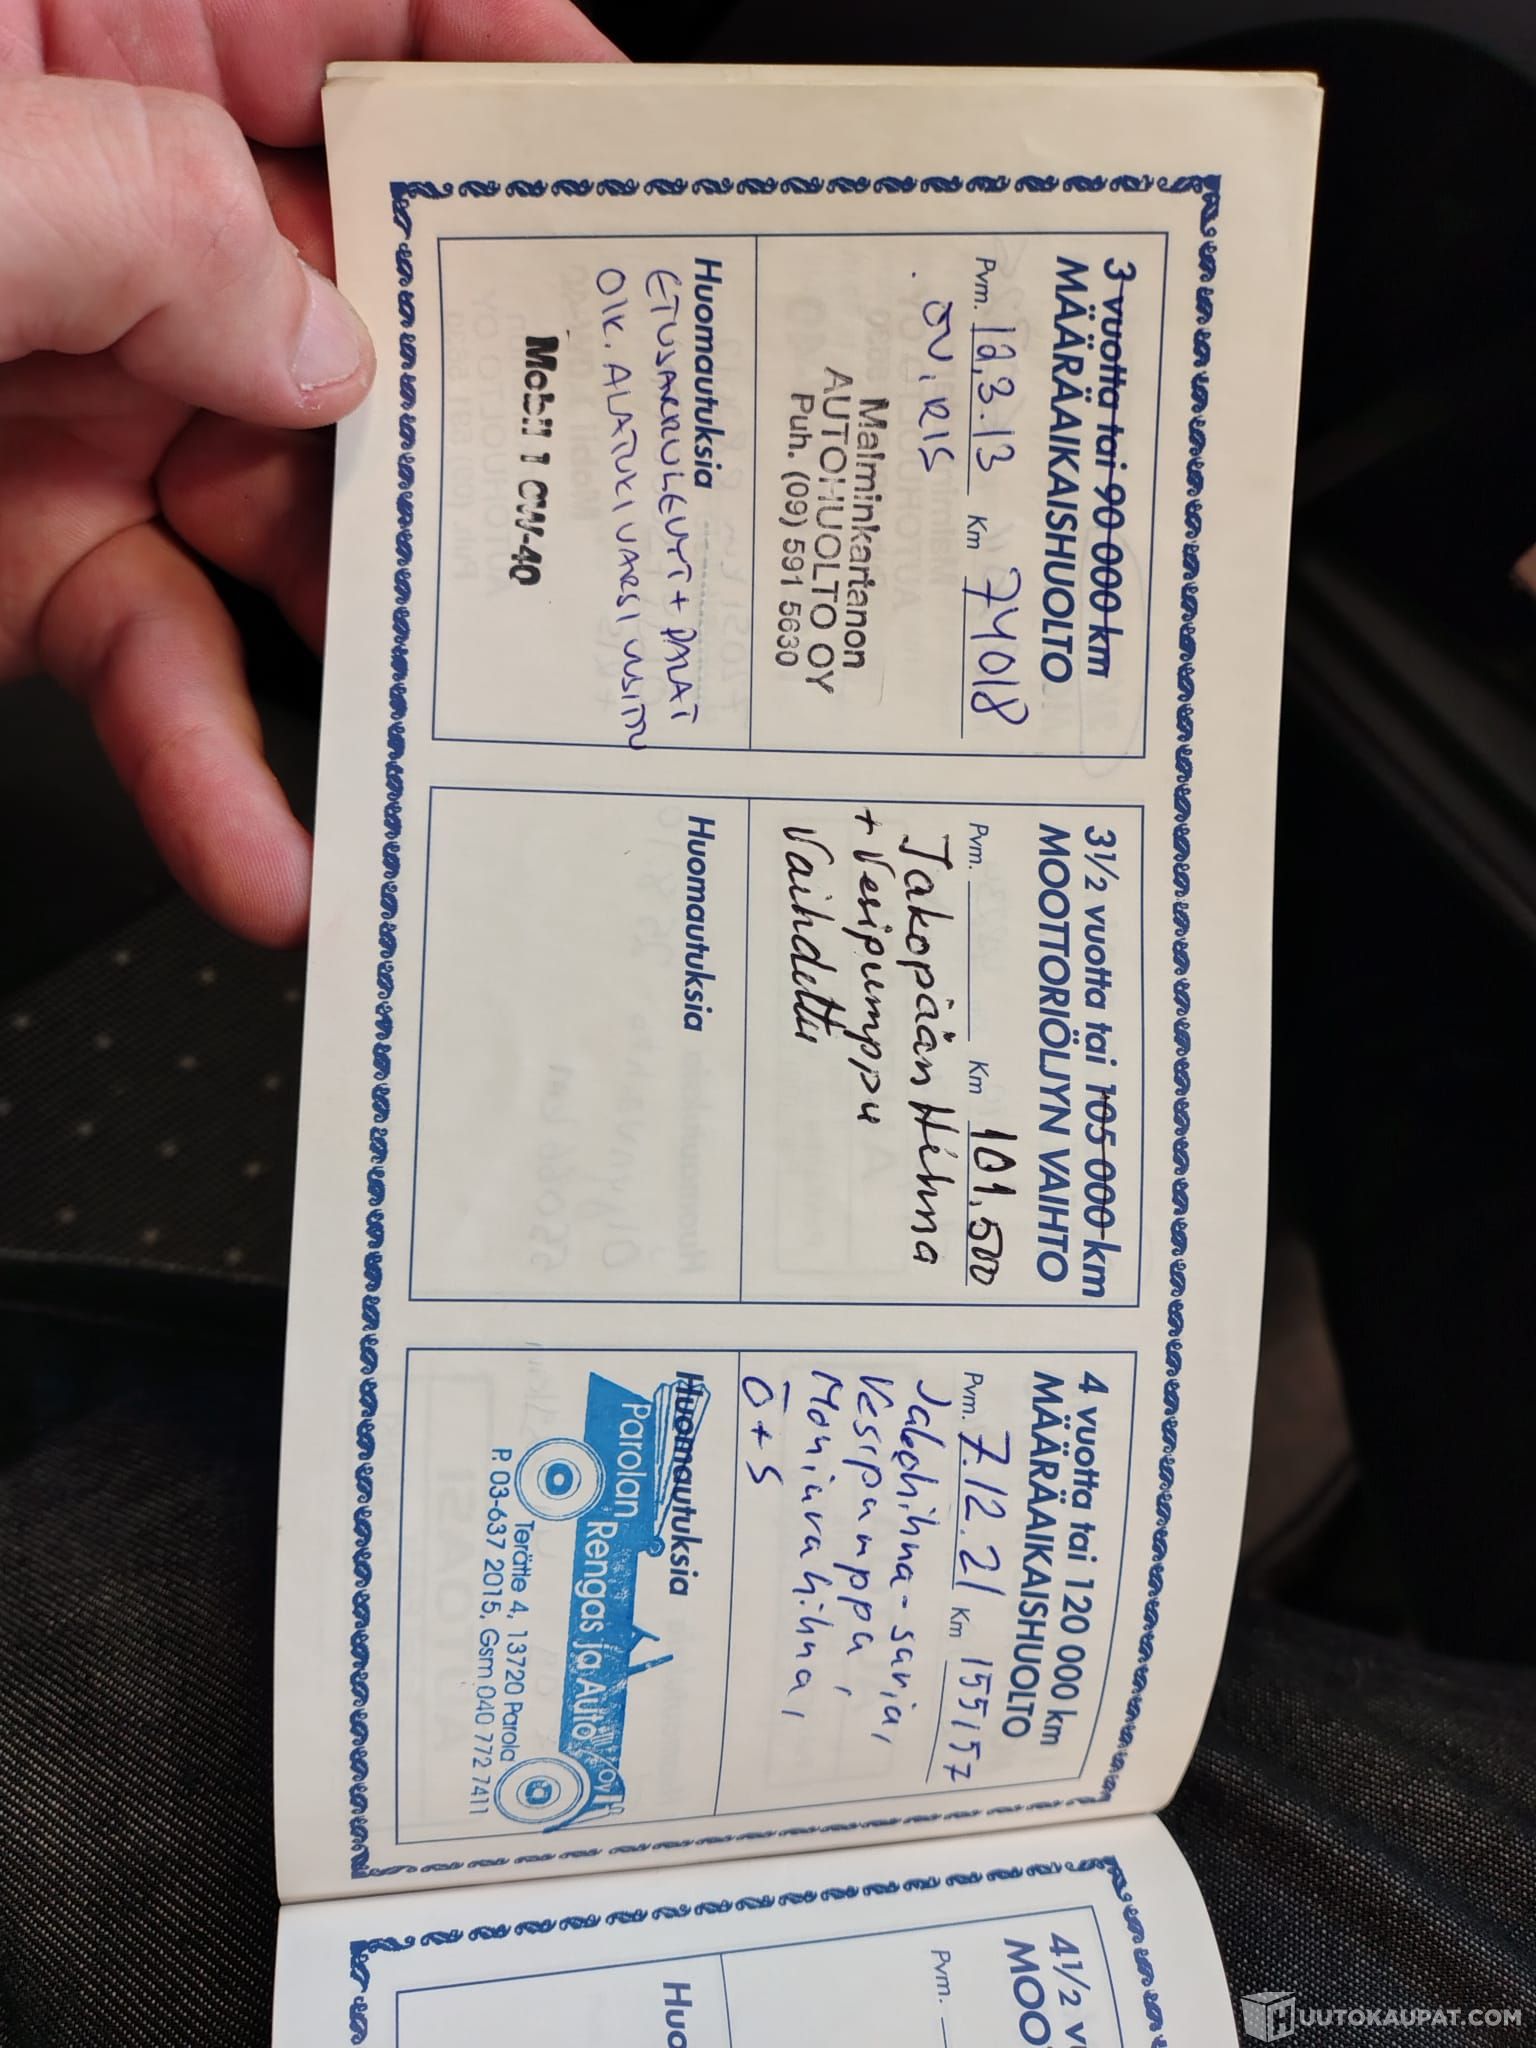 3 vuotta tai 90 000 km
MÄÄRÄAIKAISHUOLTO
Pvm. 12.3.13 Km 74018
ÖV. RIS
Malminkartanon
AUTOHUOLTO OY
Puh. (09) 591 5630
Huomautuksia
ETUSARKULEVYT + PALAT
OIK. ALATUKIVARSI UUSITTU
Mobil 1 0W-40
3½ vuotta tai 105 000 km
MOOTTORIÖLJYN VAIHTO
Pvm. Km 101,500
Jakopään Hihna
+ Vesipumppu
Vaihdettu
Huomautuksia
4 vuotta tai 120 000 km
MÄÄRÄAIKAISHUOLTO
Pvm. 7.12.21 Km 155157
Jakohihna-sarja,
Vesipumppu,
Moniurahihna,
Ö + S
Huomautuksia
Parolan Rengas ja Auto Oy
Terätie 4, 13720 Parola
P. 03-637 2015, Gsm 040 772 7411
4½ v
MOO
Pvm.
Huo
HUUTOKAUPAT.COM